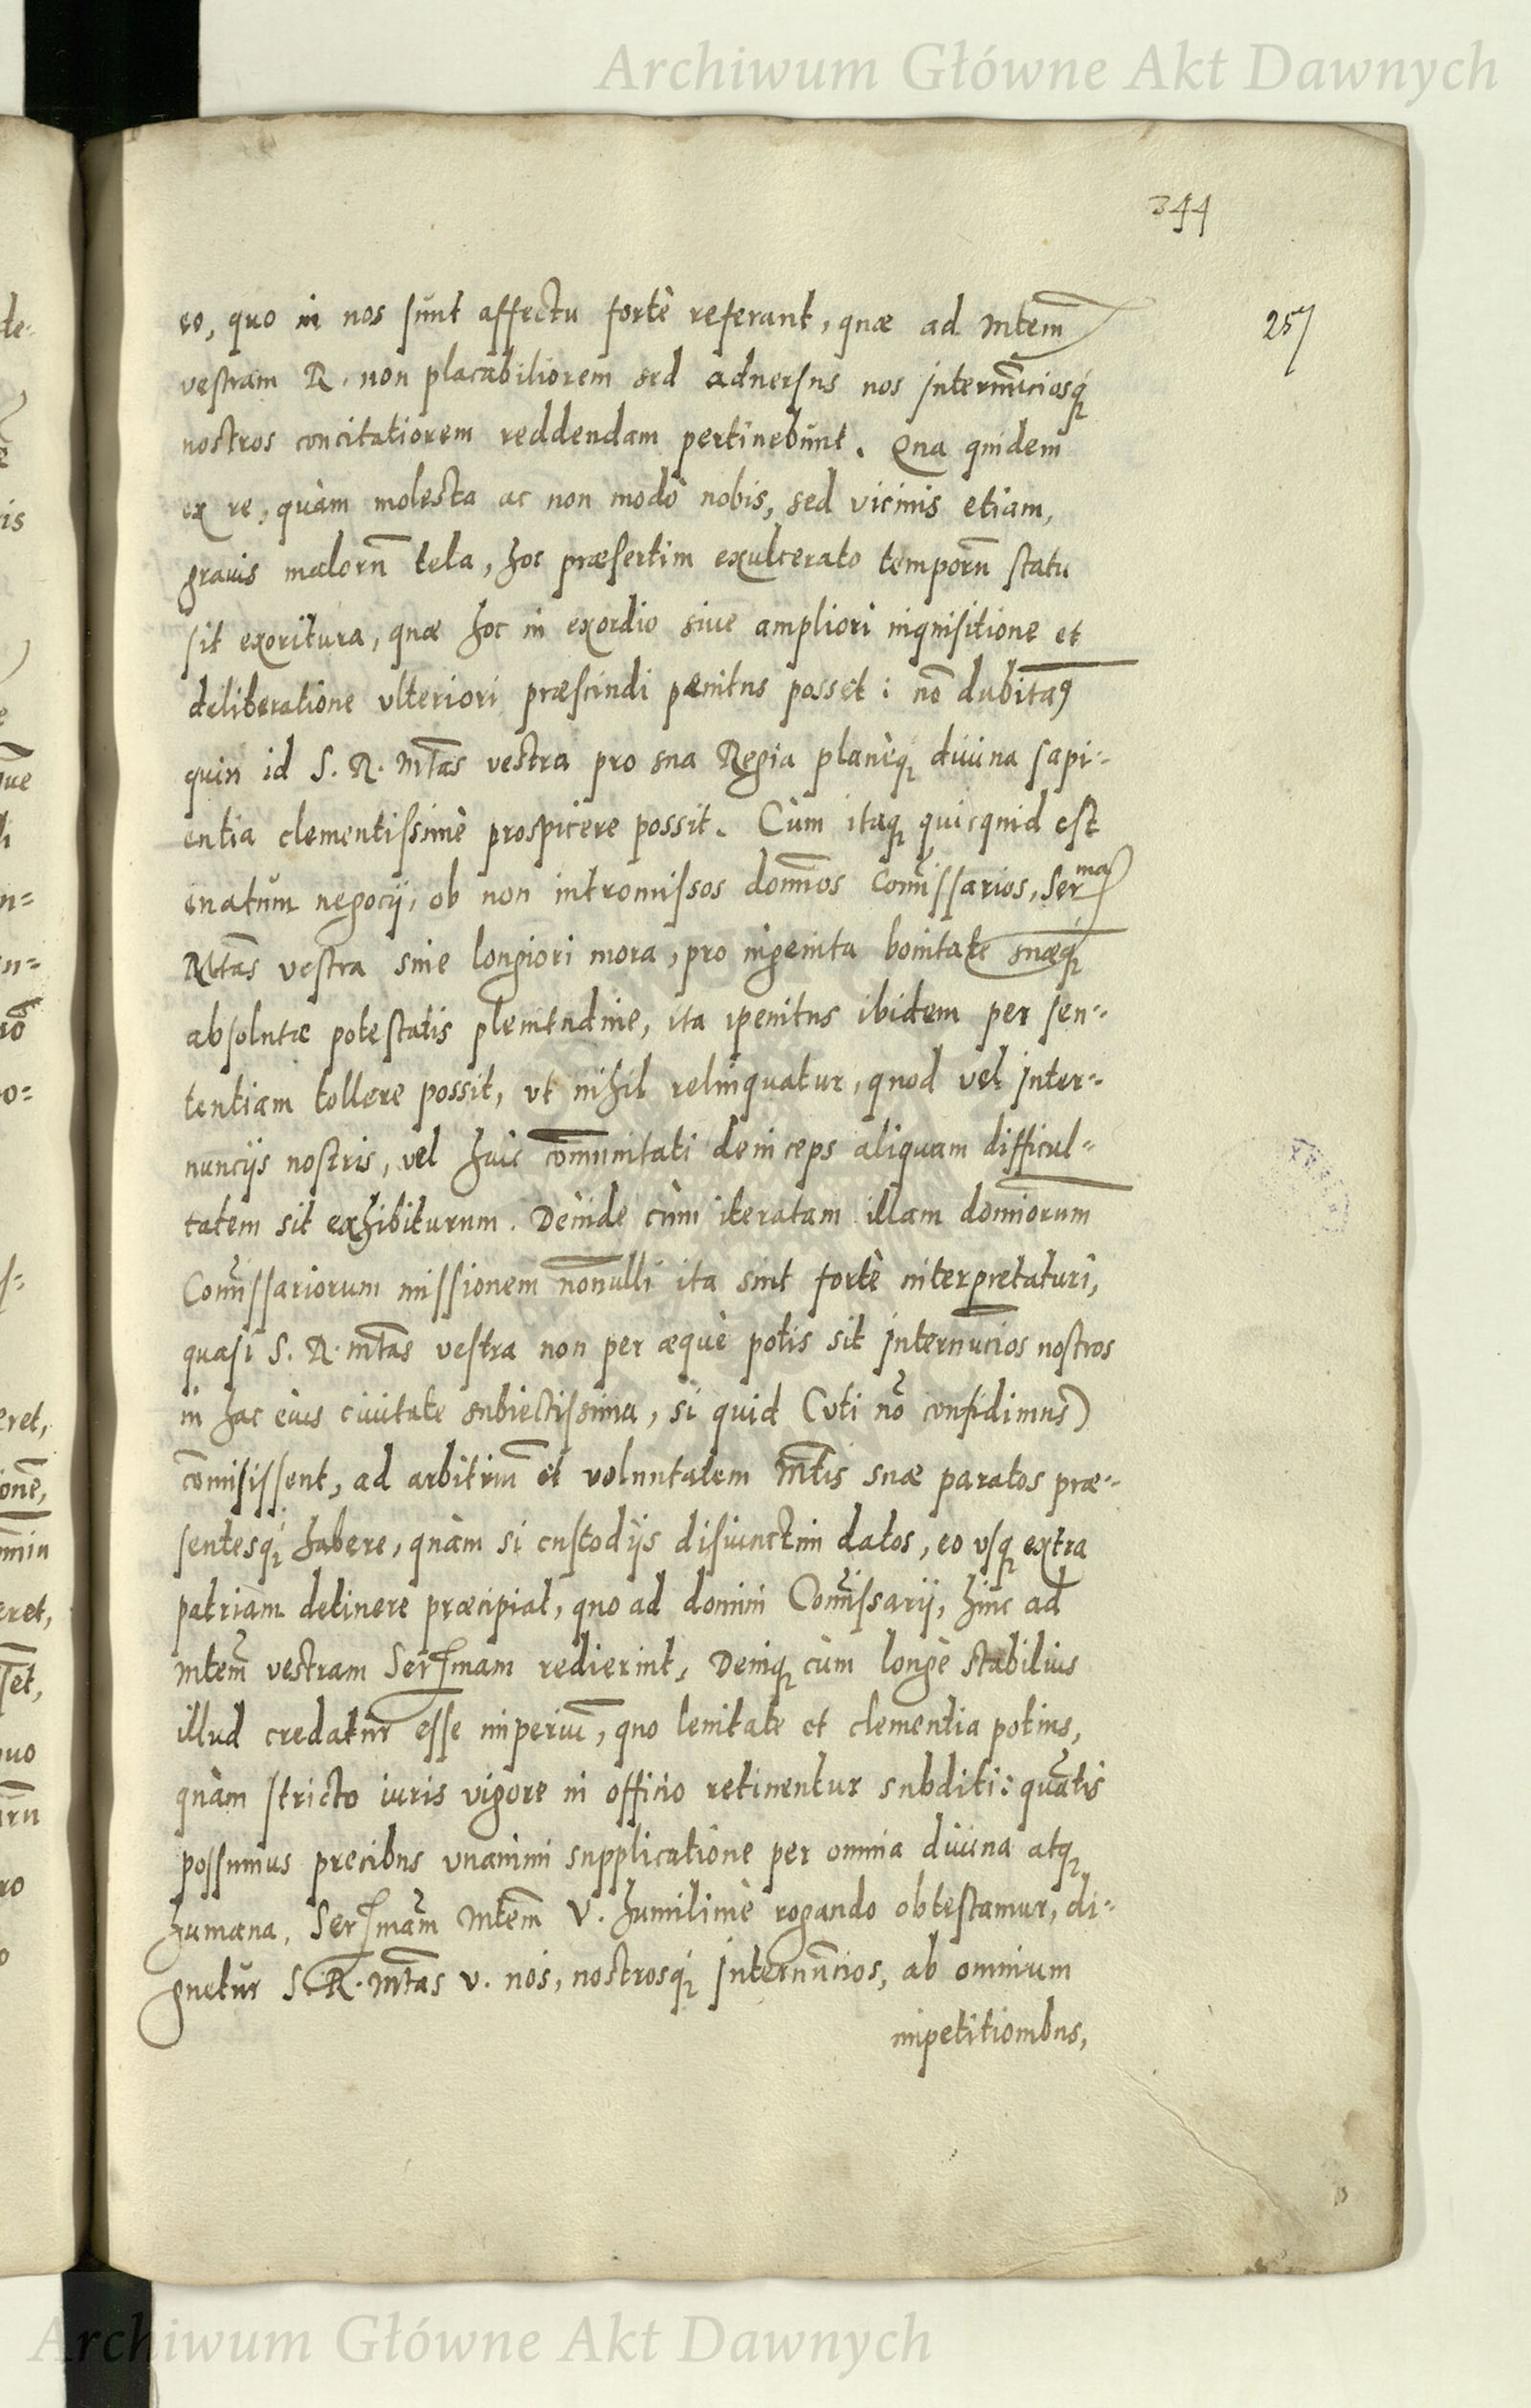 Archiwum Główne Akt Dawnych
344
257
eo, quo in nos sunt affectu fortè referant, quæ ad Mtem̄
vestram R. non placabiliorem sed aduersus nos internūciosq́
nostros concitatiorem reddendam pertinebunt. Qua quidem
ex re, quàm molesta ac non modò nobis, sed vicinis etiam,
grauis malorū tela, hoc præsertim exulcerato temporū statu
sit exoritura, quæ hoc in exordio siue ampliori inquisitione et
deliberatione vlteriori præscindi pænitus posset: nō dubitaꝰ
quin id S. R. Mtas vestra pro sua Regia planèq, diuina sapi-
entia clementissimè prospicere possit. Cùm itaq, quicquid est
enatum negocij, ob non intromissos dom̄os Com̄issarios, Serma
Mtas vestra sine longiori mora, pro ingenita bonitate suæq́
absolutæ potestatis plenitudine, ita penitus ibidem per sen-
tentiam tollere possit, vt nihil relinquatur, quod vel inter-
nuncijs nostris, vel huic com̄unitati deinceps aliquam difficul-
tatem sit exhibiturum. Deinde cùm iteratam illam domiorum
Com̄issariorum missionem nonulli ita sint fortè interpretaturi,
quasi S. R. Mtas vestra non per æquè potis sit internūcios nostros
in hac eius ciuitate subiectissima, si quid (vti nō confidimus)
com̄isissent, ad arbitriū et voluntatem Mtis suæ paratos præ-
sentesq́ habere, quàm si custodijs disiunctim datos, eo vsq, extra
patriam detinere præcipiat, quo ad domini Com̄issarij, hinc ad
Mtem̄ vestram Ser̄mam redierint, Deniq, cùm longè stabilius
illud credatur esse imperiū, quo lenitate et clementia potius,
quàm stricto iuris vigore in officio retinentur subditi: quātis
possumus precibus vnanimi supplicatione per omnia diuina atq,
humana, Ser̄mam Mtem̄ V. humilimè rogando obtestamur, di-
gnetur S. R. Mtas v. nos, nostrosq́ internūcios, ab omnium
impetitionibus,
Archiwum Główne Akt Dawnych